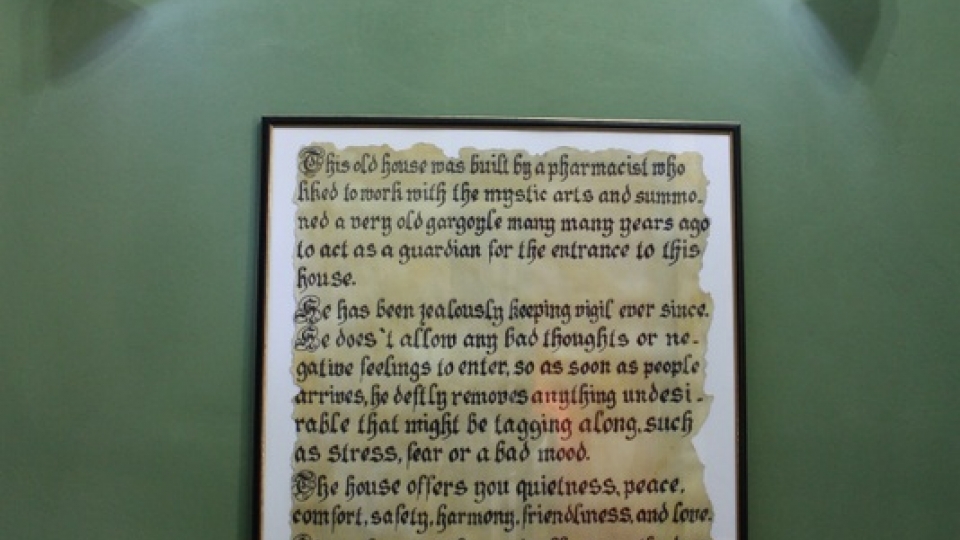 This old house was built by a pharmacist who
liked to work with the mystic arts and summo-
ned a very old gargoyle many many years ago
to act as a guardian for the entrance to this
house.
He has been zealously keeping vigil ever since.
He does`t allow any bad thoughts or ne-
gative feelings to enter, so as soon as people
arrives, he deftly removes anything undesi-
rable that might be tagging along, such
as stress, fear or a bad mood.
The house offers you quietness, peace,
comfort, safety, harmony, friendliness, and love.